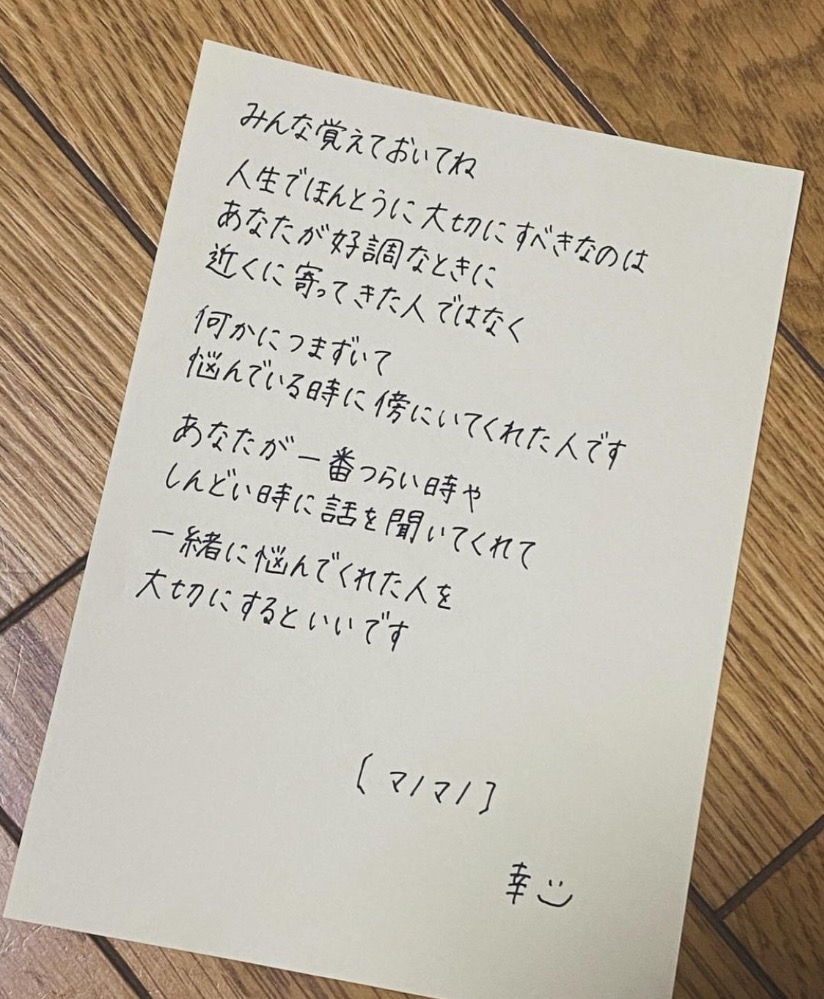 みんな覚えておいてね
人生でほんとうに大切にすべきなのは
あなたが好調なときに
近くに寄ってきた人ではなく
何かにつまずいて
悩んでいる時に傍にいてくれた人です
あなたが一番つらい時や
しんどい時に話を聞いてくれて
一緒に悩んでくれた人を
大切にするといいです
[マノマノ]
幸